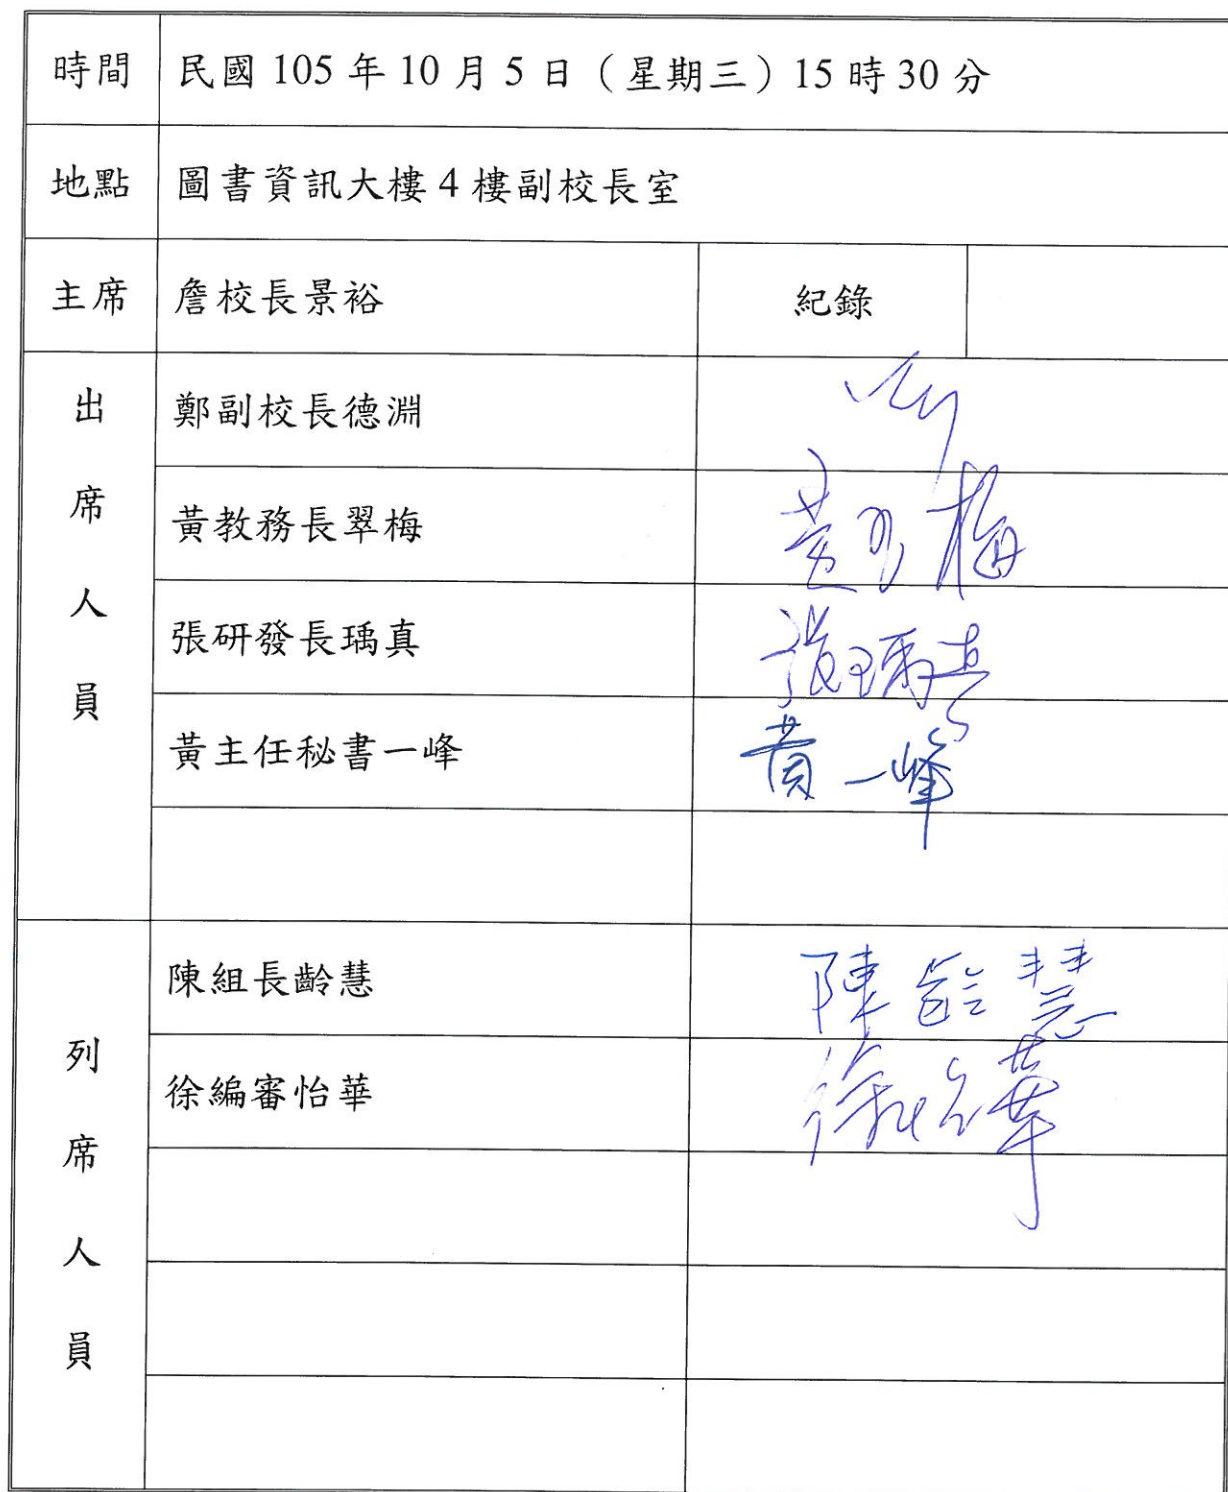 時間 民國 105 年 10 月 5 日（星期三）15 時 30 分
地點 圖書資訊大樓 4 樓副校長室
主席 詹校長景裕 紀錄
出席人員
鄭副校長德淵
黃教務長翠梅 黃翠梅
張研發長瑀真 張瑀真
黃主任秘書一峰 黃一峰
列席人員
陳組長齡慧 陳齡慧
徐編審怡華 徐怡華